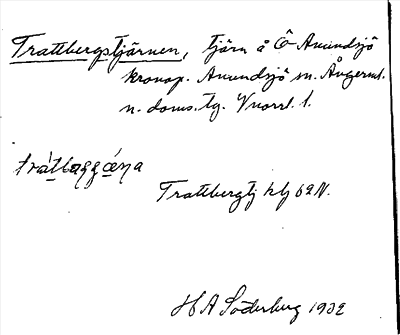 Trattbergstjärnen, tjärn å Ö Anundsjö
kronop. Anundsjö sn. Ångerml.
n. doms. tg. Vnorrl. l.
tráttbæggæ̀ṇa
Trattbergtj kbl 62N.
H A Söderberg 1932